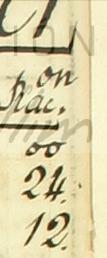 on
Rac.
00
24.
12.